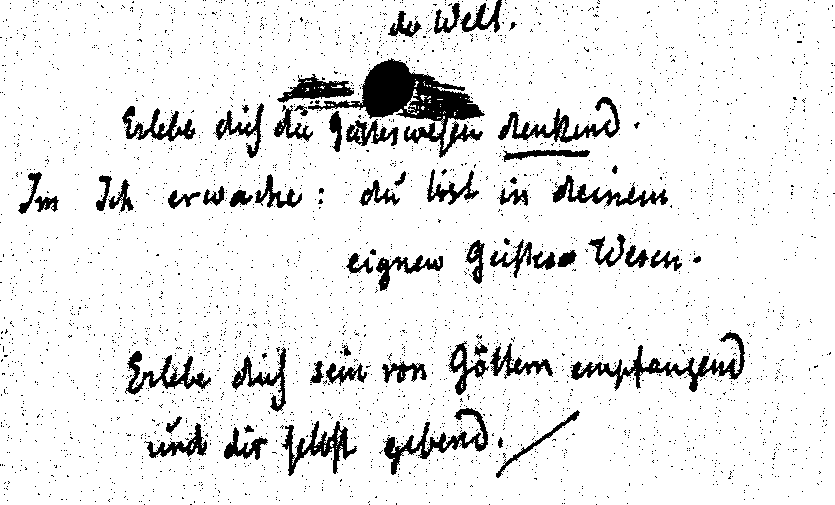 der Welt.
Erlebe dich die Götteswesen denkend.
Im Ich erwache: du bist in deinem
eignen Geistes Wesen.
Erlebe dich sein von Göttern empfangend
und dir selbst gebend.